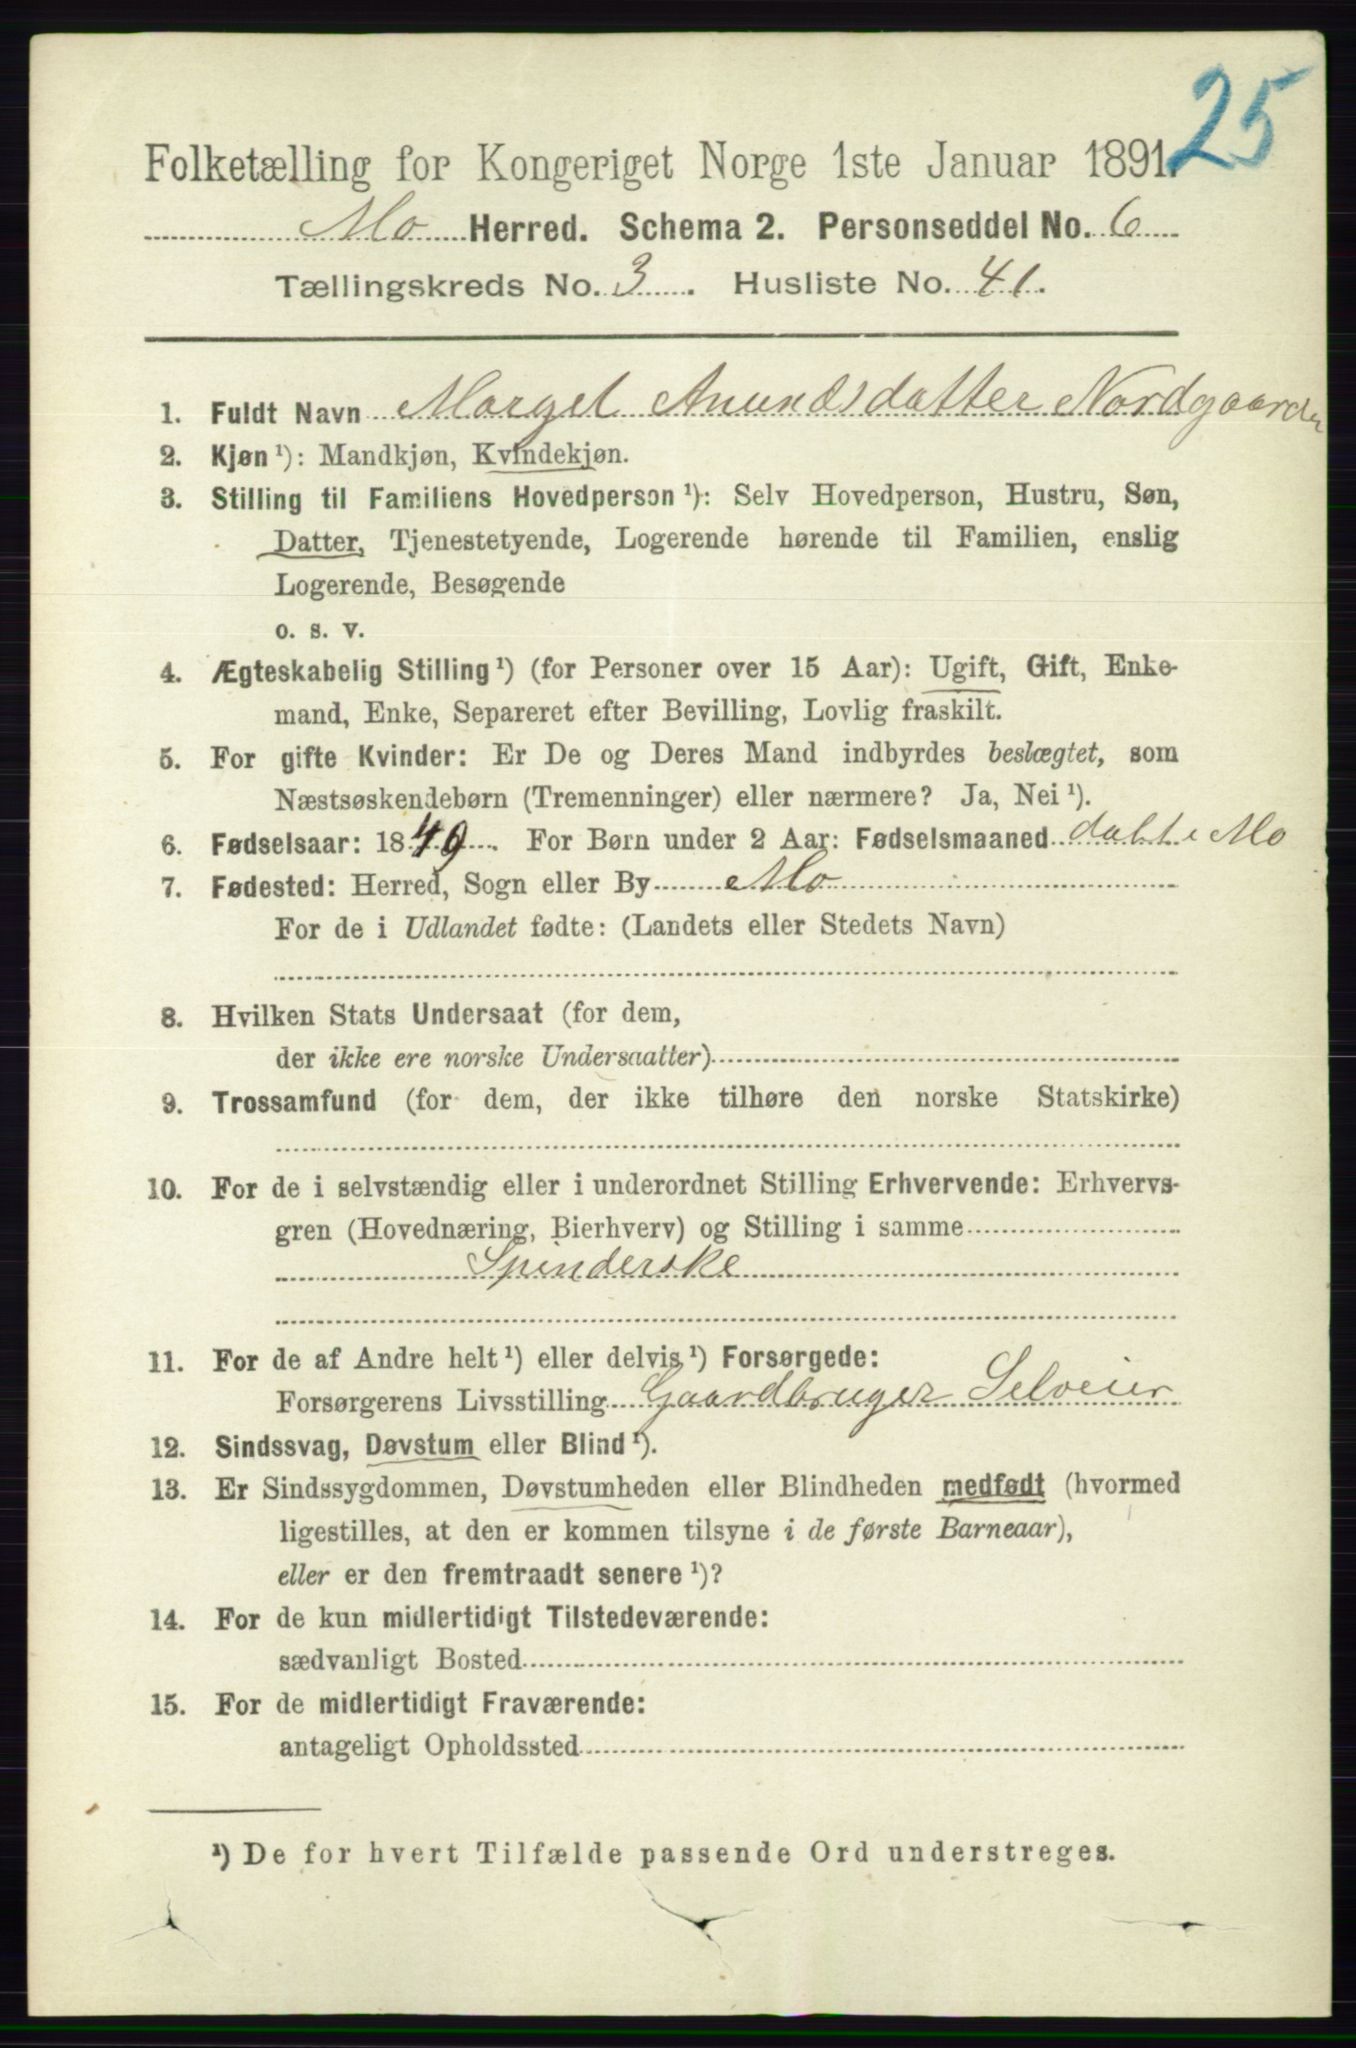 25
Folketælling for Kongeriget Norge 1ste Januar 1891.
Mo Herred. Schema 2. Personseddel No. 6
Tællingskreds No. 3. Husliste No. 41.
1. Fuldt Navn Margit Anundsdatter Nordgaarden
2. Kjøn ¹): Mandkjøn, Kvindekjøn.
3. Stilling til Familiens Hovedperson ¹): Selv Hovedperson, Hustru, Søn,
Datter, Tjenestetyende, Logerende hørende til Familien, enslig
Logerende, Besøgende
o. s. v.
4. Ægteskabelig Stilling ¹) (for Personer over 15 Aar): Ugift, Gift, Enke-
mand, Enke, Separeret efter Bevilling, Lovlig fraskilt.
5. For gifte Kvinder: Er De og Deres Mand indbyrdes beslægtet, som
Næstsøskendebørn (Tremenninger) eller nærmere? Ja, Nei ¹).
6. Fødselsaar: 1849. For Børn under 2 Aar: Fødselsmaaned døbt i Mo
7. Fødested: Herred, Sogn eller By Mo
For de i Udlandet fødte: (Landets eller Stedets Navn)
8. Hvilken Stats Undersaat (for dem,
der ikke ere norske Undersaatter)
9. Trossamfund (for dem, der ikke tilhøre den norske Statskirke)
10. For de i selvstændig eller i underordnet Stilling Erhvervende: Erhvervs-
gren (Hovednæring, Bierhverv) og Stilling i samme
Spinderske
11. For de af Andre helt ¹) eller delvis ¹) Forsørgede:
Forsørgerens Livsstilling Gaardbruger Selveier
12. Sindssvag, Døvstum eller Blind ¹).
13. Er Sindssygdommen, Døvstumheden eller Blindheden medfødt (hvormed
ligestilles, at den er kommen tilsyne i de første Barneaar),
eller er den fremtraadt senere ¹)?
14. For de kun midlertidigt Tilstedeværende:
sædvanligt Bosted
15. For de midlertidigt Fraværende:
antageligt Opholdssted
¹) De for hvert Tilfælde passende Ord understreges.